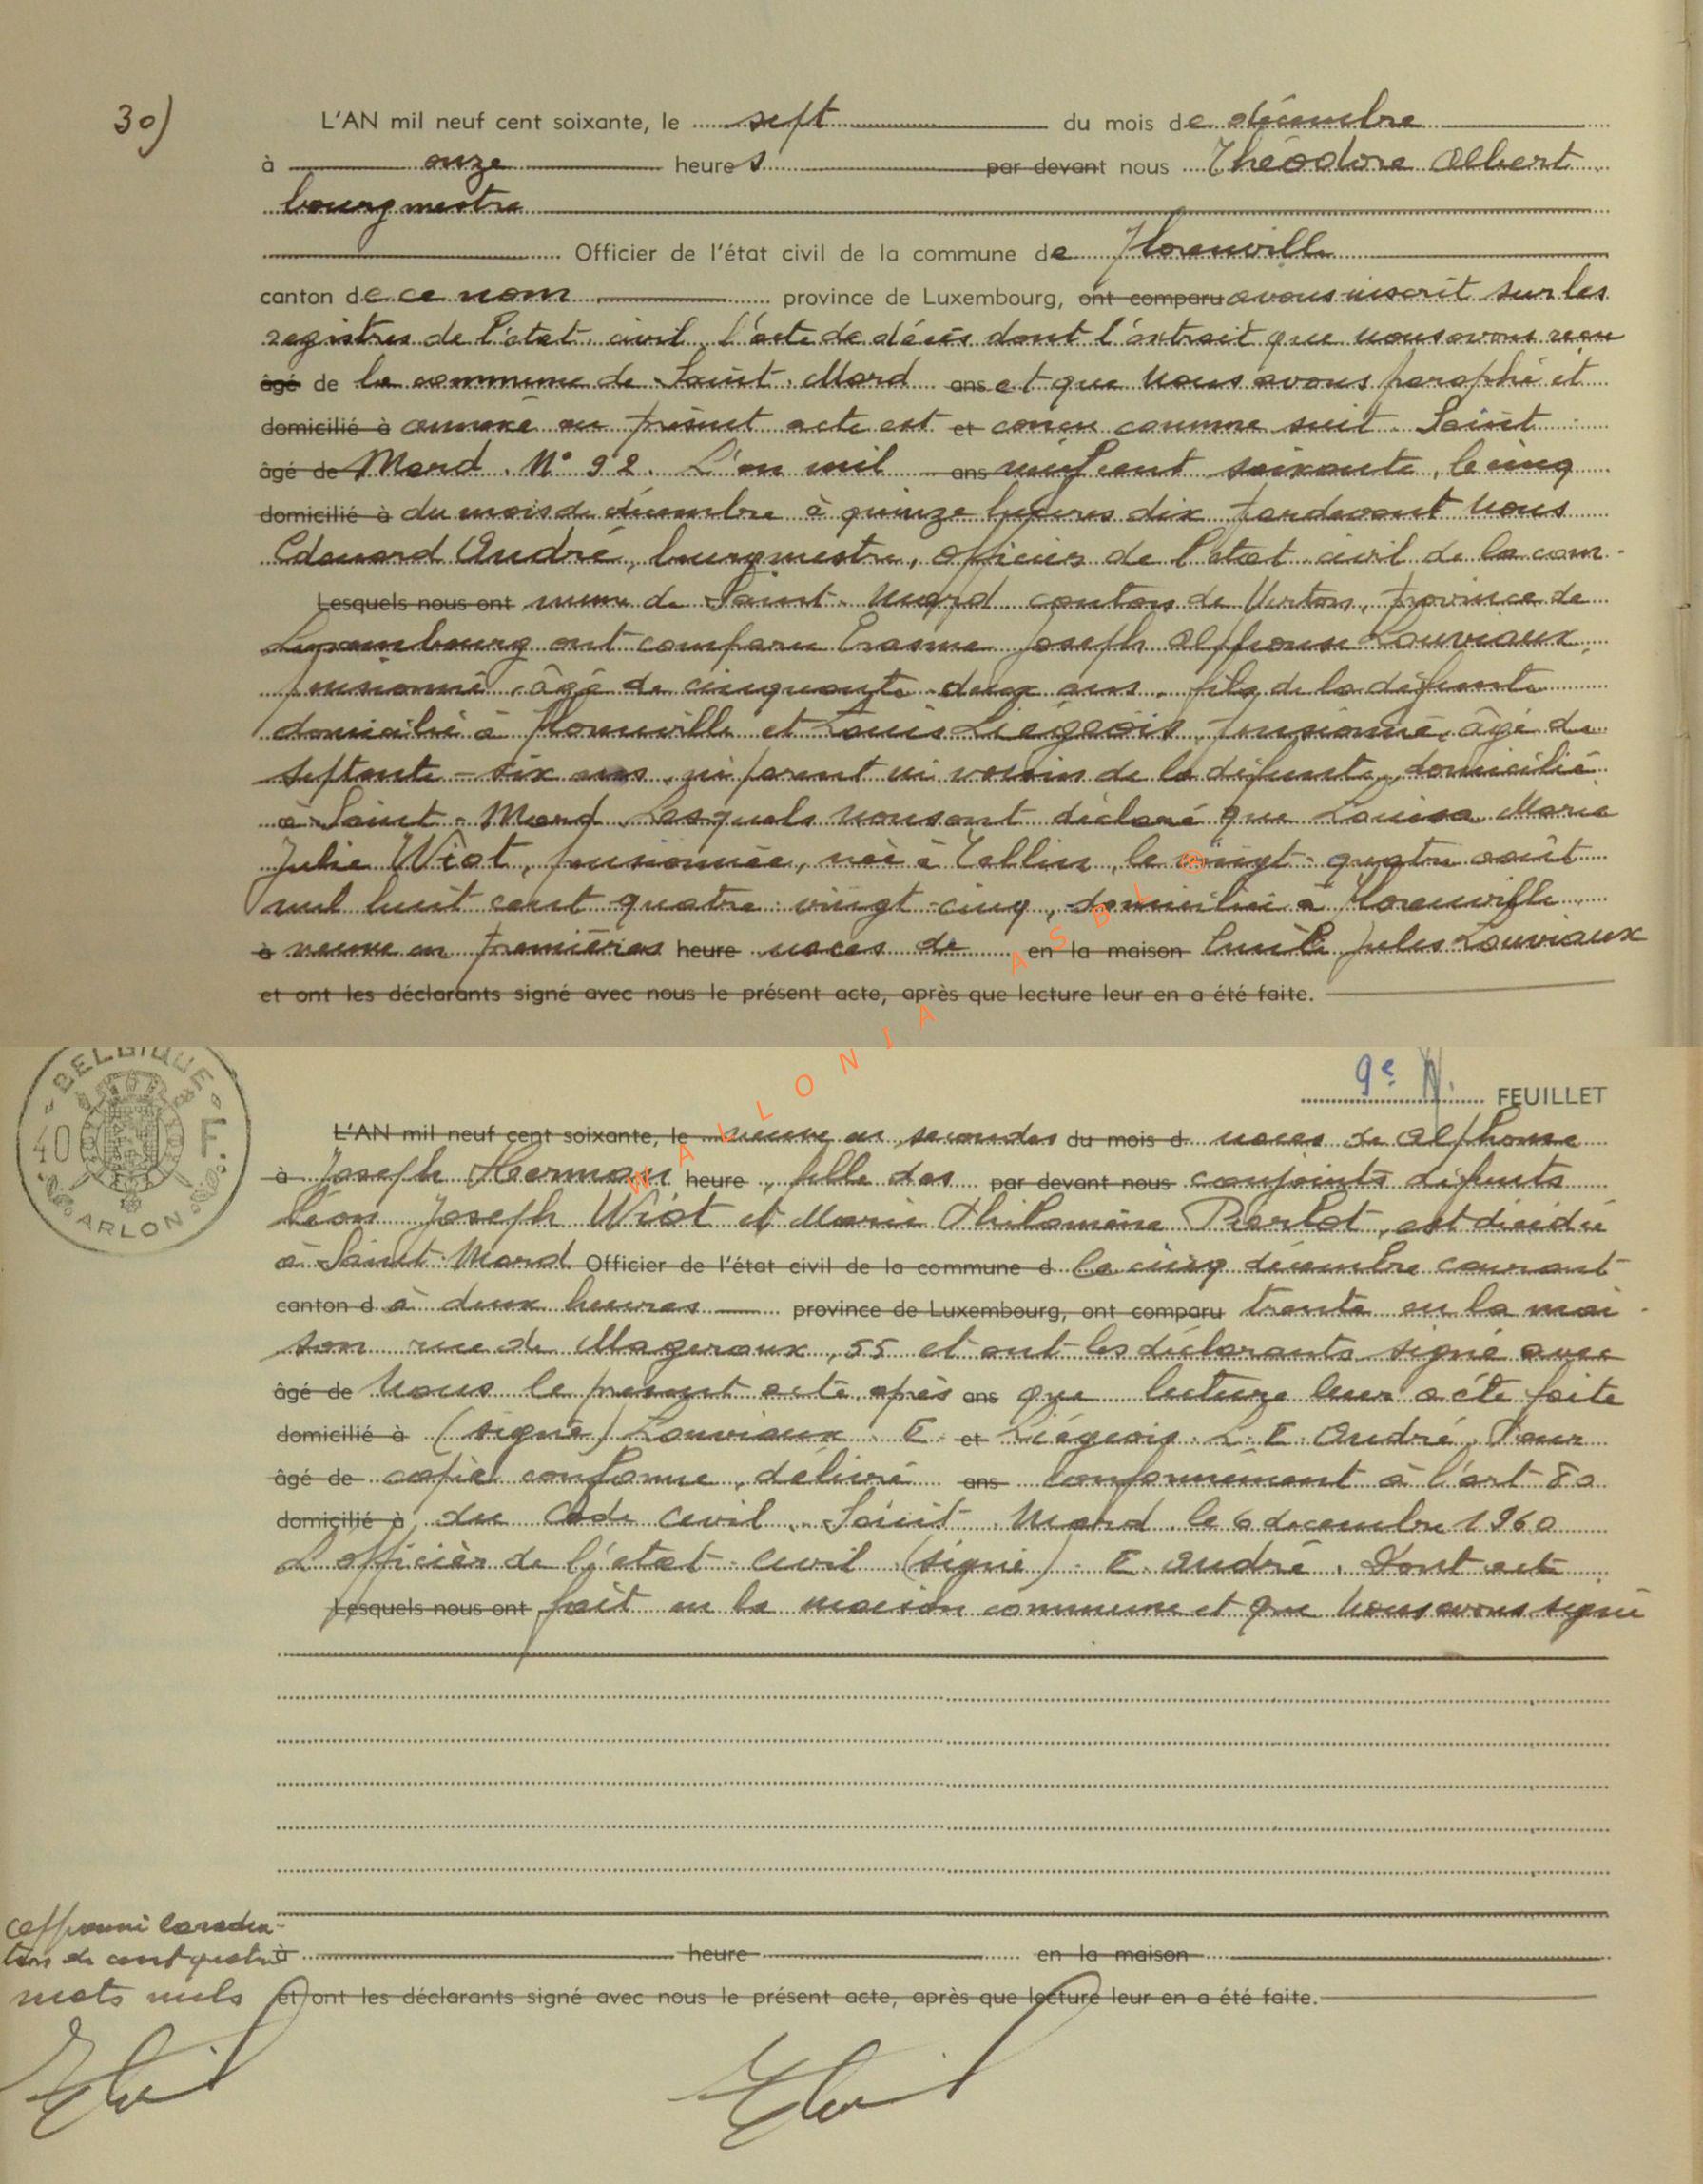 30)
L'AN mil neuf cent soixante, le sept du mois de décembre
à onze heures par devant nous Théodore Albert
bourgmestre
Officier de l'état civil de la commune de Florenville
canton de ce nom province de Luxembourg, ont comparu avons inscrit sur les
registres de l'état civil l'acte de décès dont l'extrait que nous avons reçu
âgé de la commune de Saint-Mard ans et que nous avons paraphé et
domicilié à annexé au présent acte est et conçu comme suit. Saint
âgé de Mard. N° 92. L'an mil ans neuf cent soixante, le cinq
domicilié à du mois de décembre à quinze heures dix pardevant nous
Edouard André, bourgmestre, officier de l'état civil de la com-
Lesquels nous ont mune de Saint-Mard canton de Virton, province de
Luxembourg ont comparu Erasme Joseph Alphonse Louviaux
pensionné, âgé de cinquante-deux ans, fils de la défunte
domicilié à Florenville et Louis Liégeois, pensionné, âgé de
septante-six ans, ni parent ni voisin de la défunte, domicilié
à Saint-Mard Lesquels nous ont déclaré que Louisa Marie
Julie Wiot, pensionnée, née à Tellin, le vingt-quatre août
mil huit cent quatre-vingt-cinq, domiciliée à Florenville
à veuve en premières heure noces de en la maison Jules Louviaux
et ont les déclarants signé avec nous le présent acte, après que lecture leur en a été faite.
BELGIQUE
40 F.
ARLON
9e FEUILLET
L'AN mil neuf cent soixante, le veuve en secondes du mois d noces de Alphonse
à Joseph Herman heure, fille des par devant nous conjoints défunts
Léon Joseph Wiot et Marie Philomène Pierlot, est décédée
à Saint-Mard Officier de l'état civil de la commune d le cinq décembre courant
canton d à deux heures province de Luxembourg, ont comparu trente en la mai-
son rue de Mageroux, 55 et ont les déclarants signé avec
âgé de nous le présent acte, après ans que lecture leur a été faite
domicilié à (signé) Louviaux E et Liégeois. L. E. André. Pour
âgé de copie conforme, délivré ans conformément à l'art 80
domicilié à du Code Civil. Saint-Mard le 6 decembre 1960
L'officier de l'état-civil (signé) E. André. Dont acte
Lesquels nous ont fait en la maison commune et que nous avons signé
Approuvé la radia-
tion de cent quatre
à heure en la maison
mots nuls
et ont les déclarants signé avec nous le présent acte, après que lecture leur en a été faite.
WALLONIA ASBL ®